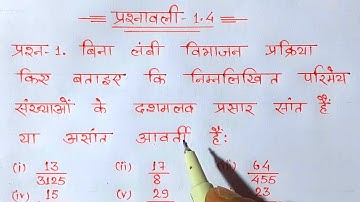 प्रश्नावली - 1.4
प्रश्न- 1. बिना लंबी विभाजन प्रक्रिया
किए बताइए कि निम्नलिखित परिमेय
संख्याओं के दशमलव प्रसार सांत हैं
या असांत आवर्ती हैं:
(i) 13/3125 (ii) 17/8 64/455
(iv) 15 (v) 29 23